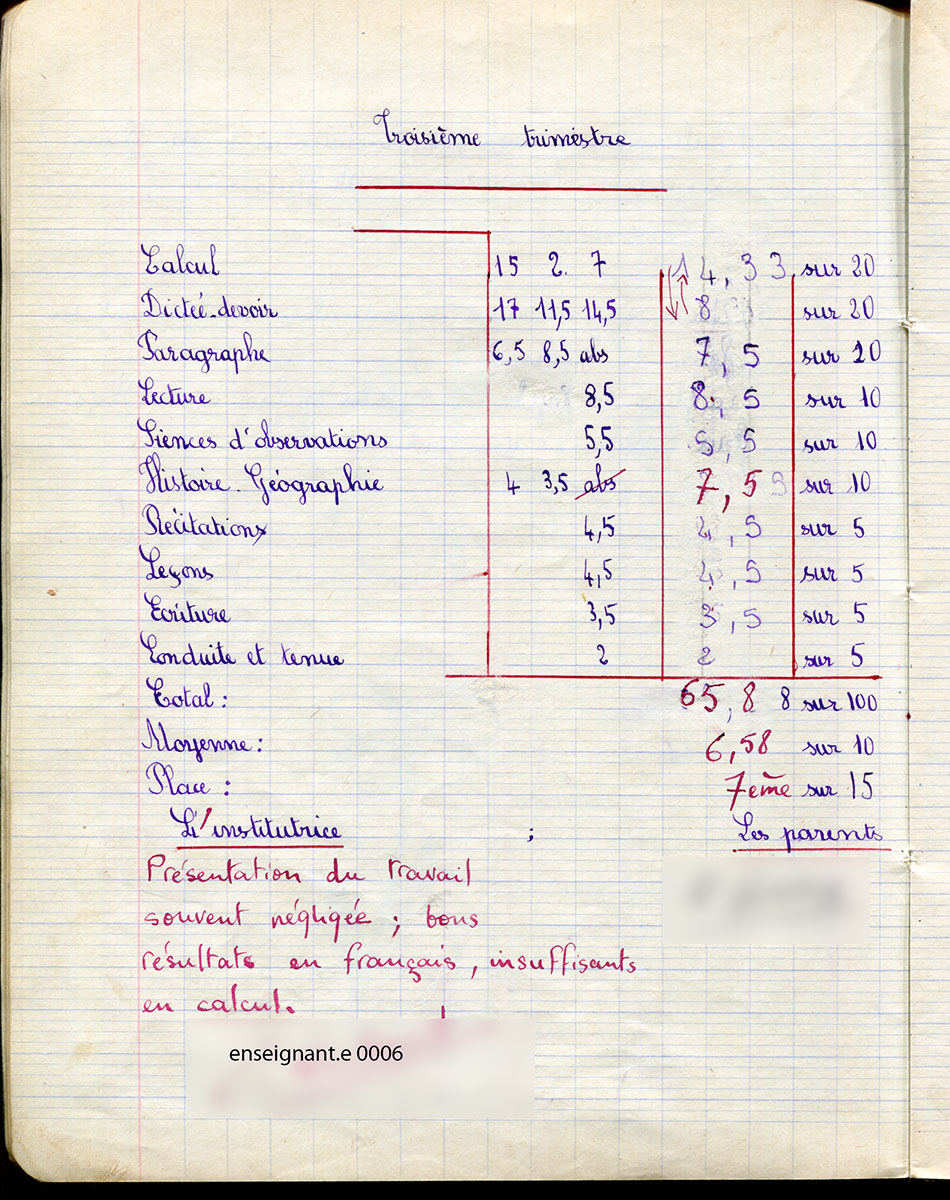 Troisième trimèstre
Calcul 15 2. 7 14,33 sur 20
Dicteé-devoir 17 11,5 14,5 8 sur 20
Paragraphe 6,5 8,5 abs 7,5 sur 10
Lecture 8,5 8,5 sur 10
Siences d'observations 5,5 5,5 sur 10
Histoire-Géographie 4 3,5 abs 7,5 sur 10
Récitations 4,5 4,5 sur 5
Leçons 4,5 4,5 sur 5
Ecriture 3,5 3,5 sur 5
Conduite et tenue 2 2 sur 5
Total : 65,88 sur 100
Moyenne : 6,58 sur 10
Place : 7ème sur 15
L'institutrice ; Les parents
Présentation du travail
souvent négligée ; bons
résultats en français, insuffisants
en calcul.
enseignant.e 0006